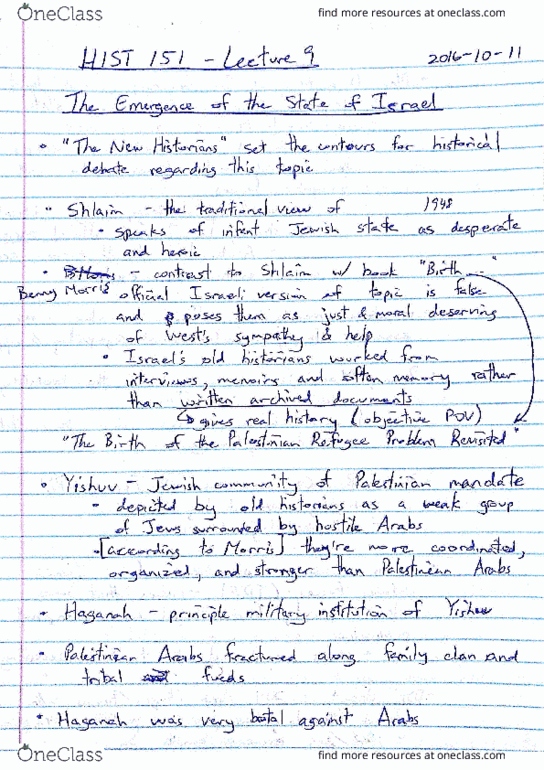 OneClass find more resources at oneclass.com
HIST 151 - Lecture 9 2016-10-11
The Emergence of the State of Israel
• "The New Historians" set the contours for historical
debate regarding this topic
• Shlaim - the traditional view of 1948
• speaks of infent Jewish state as desperate
and heroic
• - contrast to Shlaim w/ book "Birth..."
Benny Morris official Israeli version of topic is false
and poses them as just & moral deserving
of West's sympathy & help
• Israel's old historians worked from
interviews, memoirs and often memory rather
than written archived documents
↳ gives real history (objective POV)
"The Birth of the Palestinian Refugee Problem Revisited"
• Yishuv - Jewish community of Palestinian mandate
- depicted by old historians as a weak group
of Jews surrounded by hostile Arabs
-[according to Morris] they're more coordinated,
organized, and stronger than Palestinian Arabs
• Haganah - principle military institution of Yishuv
• Palestinian Arabs fractured along family clan and
tribal fueds
• Haganah was very brutal against Arabs
OneClass find more resources at oneclass.com